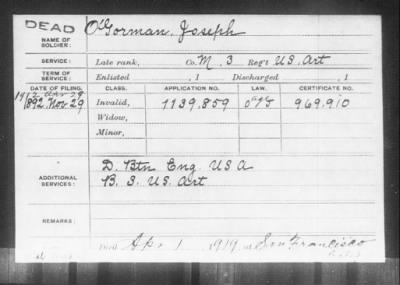 DEAD
NAME OF SOLDIER: O'Gorman, Joseph
SERVICE: Late rank, Co. M. 3 Reg't U.S. Art
TERM OF SERVICE: Enlisted , 1 Discharged , 1
DATE OF FILING. CLASS. APPLICATION NO. LAW. CERTIFICATE NO.
1912
1892, Nov 29 Invalid, 1139.859 969.910
Widow,
Minor,
ADDITIONAL SERVICES: D. Btn Eng. U S A
B. 3. U.S. Art
REMARKS:
Died Apr 1 1919, at San Francisco